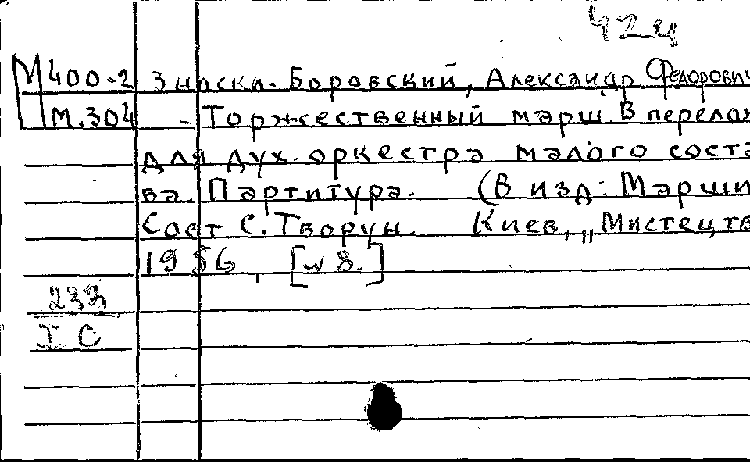 42ч
М400-2 Зноско-Боровский, Александр Федорович
М.304 - Торжественный марш. В перелож
для дух. оркестра малого соста
ва. Партитура. (В изд: Марши
Сост С. Творун. Киев, „Мистецтв
1956, [№ 8.]
232
I C